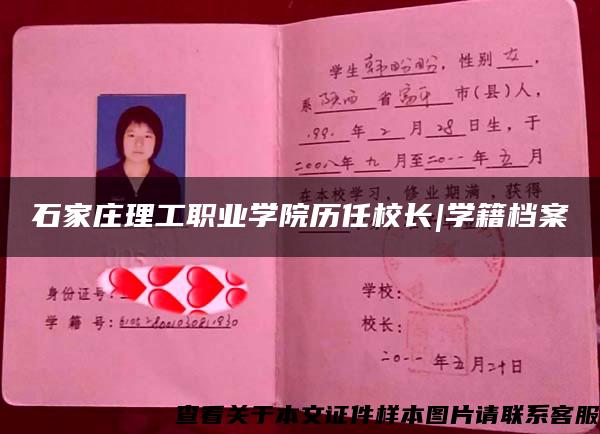 学生韩盼盼，性别女，
系陕西省富平市(县)人，
199.年2月28日生，于
二00八年九月至二0一一年五月
在本校学习，修业期满，获得
石家庄理工职业学院历任校长|学籍档案
身份证号：
学籍号：
学校：
校长：
二0一一年五月二十日
查看关于本文证件样本图片请联系客服